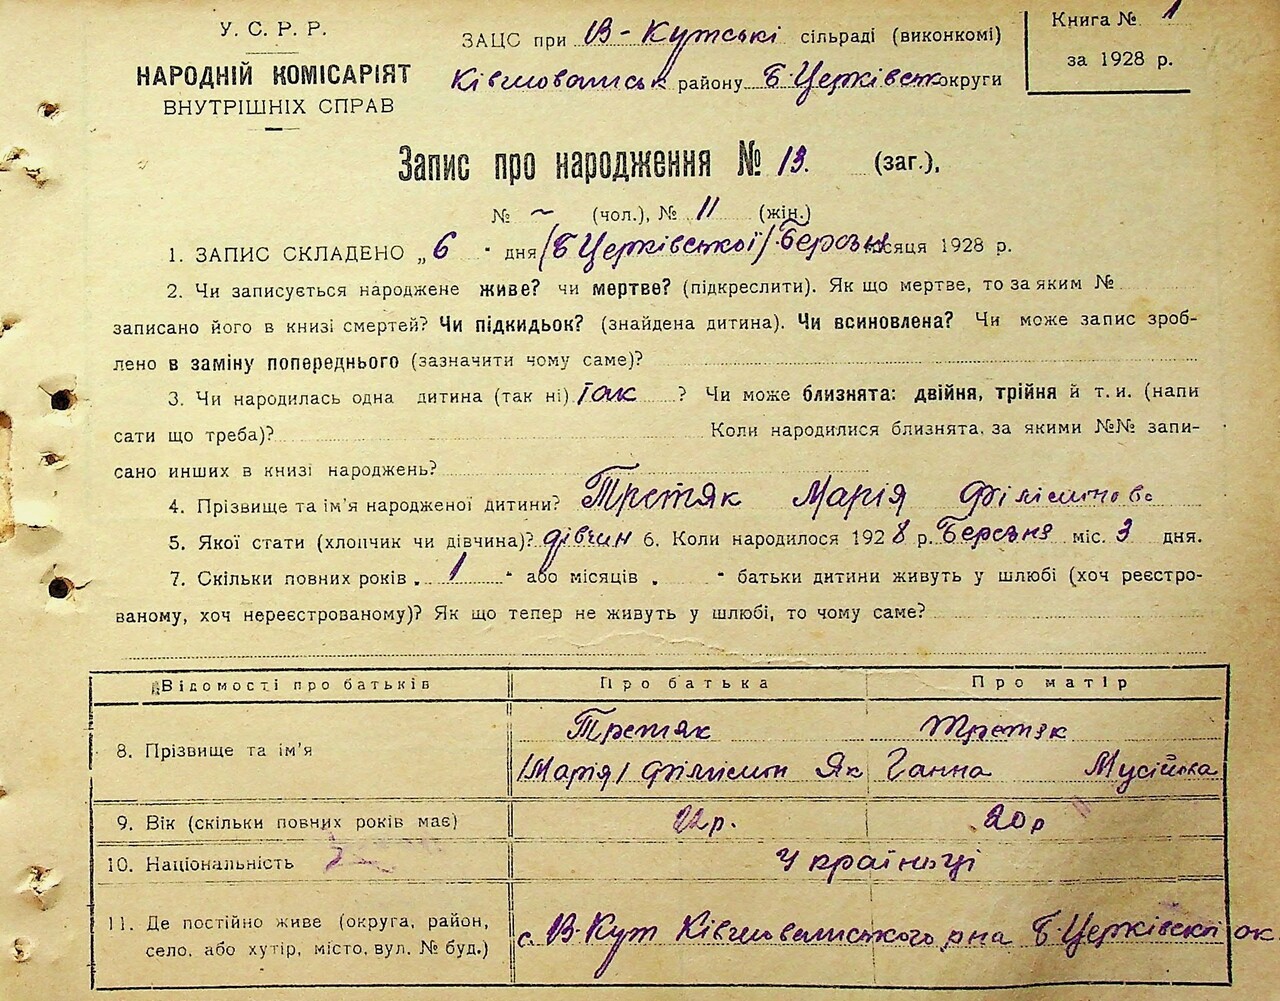 У. С. Р. Р.
НАРОДНІЙ КОМІСАРІЯТ
ВНУТРІШНІХ СПРАВ
ЗАЦС при В-Кутські сільраді (виконкомі)
Ківшоватськ району Б.Церківськ округи
Книга № 1
за 1928 р.
Запис про народження № 13. (заг.),
№ ~ (чол.), № 11 (жін.)
1. ЗАПИС СКЛАДЕНО „6" дня (Б Церківської) Березня місяця 1928 р.
2. Чи записується народжене живе? чи мертве? (підкреслити). Як що мертве, то за яким №
записано його в книзі смертей? Чи підкидьок? (знайдена дитина). Чи всиновлена? Чи може запис зроб-
лено в заміну попереднього (зазначити чому саме)?
3. Чи народилась одна дитина (так ні) Так ? Чи може близнята: двійня, трійня й т. и. (напи
сати що треба)? Коли народилися близнята, за якими №№ запи-
сано инших в книзі народжень?
4. Прізвище та ім'я народженої дитини? Третяк Марія Філімонов
5. Якої стати (хлопчик чи дівчина)? дівчин 6. Коли народилося 1928 р. Березня міс. 3 дня.
7. Скільки повних років „ 1 " або місяців „ " батьки дитини живуть у шлюбі (хоч реєстро-
ваному, хоч нереєстрованому)? Як що тепер не живуть у шлюбі, то чому саме?
Відомості про батьків Про батька Про матір
8. Прізвище та ім'я Третяк Третяк
(Марія) Філімон Як Ганна Мусійівка
9. Вік (скільки повних років має) 22р. 20р
10. Національність Українці
11. Де постійно живе (округа, район,
село, або хутір, місто, вул. № буд.) с. В.Кут Ківшоватського рна Б.Церківської ок.